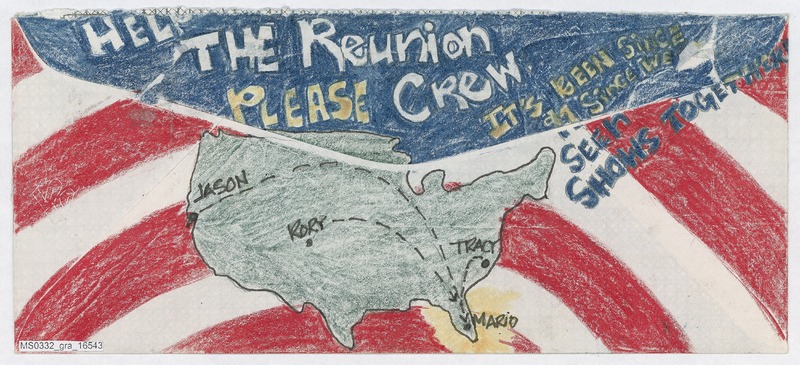 HELP THE Reunion
PLEASE CREW
IT'S BEEN SINCE
SINCE WE
SEEN
SHOWS TOGETHER!
JASON
RORY
TRACY
MARIO
MS0332_gra_16543